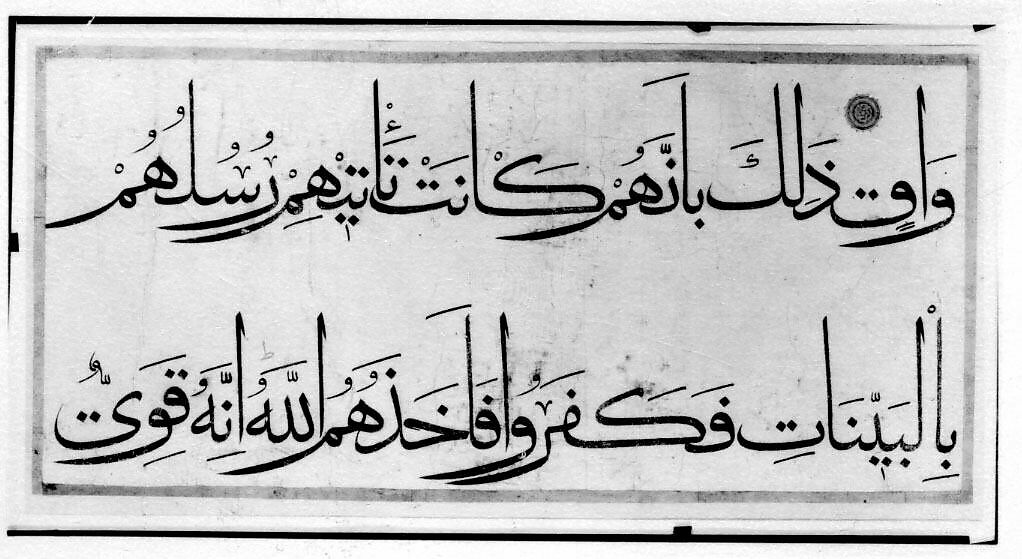 وَاقٍ ذَلِكَ بِاَنَّهُمْ كَانَتْ تَأْتِيْهِمْ رُسُلُهُمْ
بِالْبَيِّنَاتِ فَكَفَرُوا فَاَخَذَهُمُ اللَّهُ اِنَّهُ قَوِىٌّ